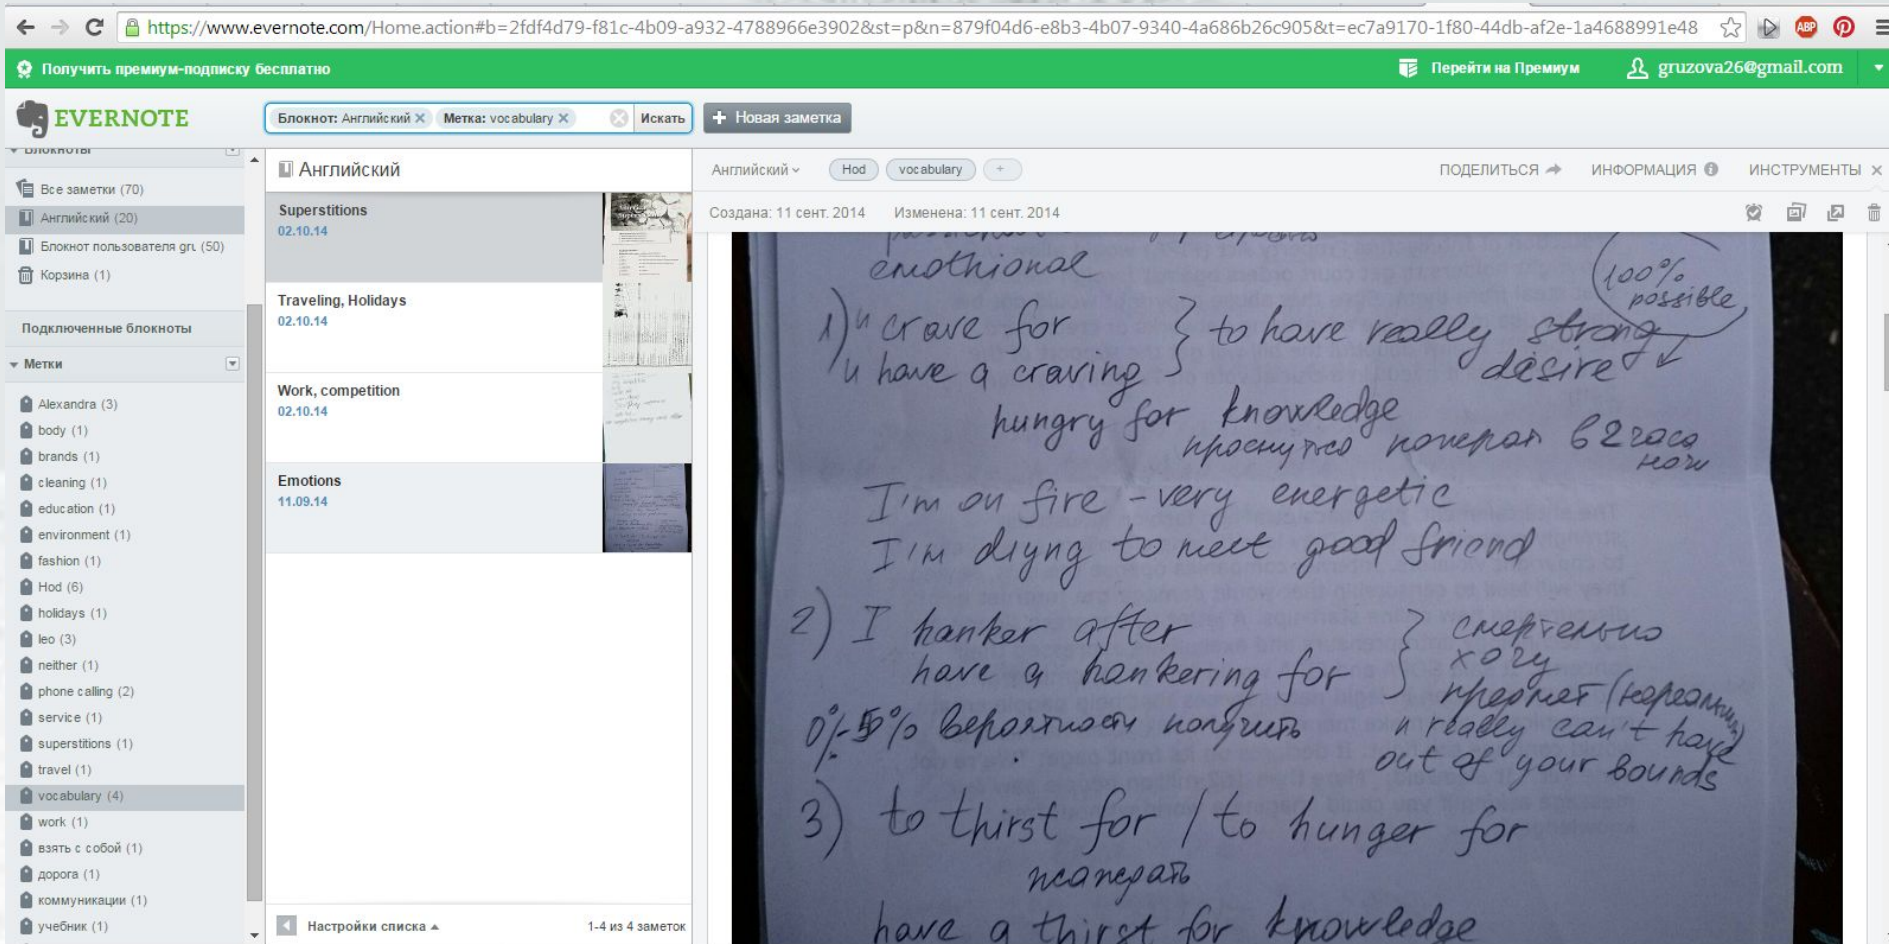 https://www.evernote.com/Home.action#b=2fdf4d79-f81c-4b09-a932-4788966e3902&st=p&n=879f04d6-e8b3-4b07-9340-4a686b26c905&t=ec7a9170-1f80-44db-af2e-1a4688991e48
ABP
Получить премиум-подписку бесплатно
Перейти на Премиум
gruzova26@gmail.com
EVERNOTE
Блокнот: Английский
Метка: vocabulary
Искать
+ Новая заметка
Блокноты
Все заметки (70)
Английский (20)
Блокнот пользователя gru (50)
Корзина (1)
Подключенные блокноты
Метки
Alexandra (3)
body (1)
brands (1)
cleaning (1)
education (1)
environment (1)
fashion (1)
Hod (6)
holidays (1)
leo (3)
neither (1)
phone calling (2)
service (1)
superstitions (1)
travel (1)
vocabulary (4)
work (1)
взять с собой (1)
дорога (1)
коммуникации (1)
учебник (1)
Английский
Superstitions
02.10.14
Traveling, Holidays
02.10.14
Work, competition
02.10.14
Emotions
11.09.14
Настройки списка
1-4 из 4 заметок
Английский
Hod
vocabulary
+
ПОДЕЛИТЬСЯ
ИНФОРМАЦИЯ
ИНСТРУМЕНТЫ
Создана: 11 сент. 2014
Изменена: 11 сент. 2014
emothional
100%
possible
1) crave for
have a craving
to have really strong
desire
hungry for knowledge
в 2 часа
ночи
I'm on fire - very energetic
I'm diyng to meet good friend
2) I hanker after
have a hankering for
смертельно
хочу
предмет
0%-5% вероятности получить
really can't have
out of your bounds
3) to thirst for / to hunger for
have a thirst for knowledge